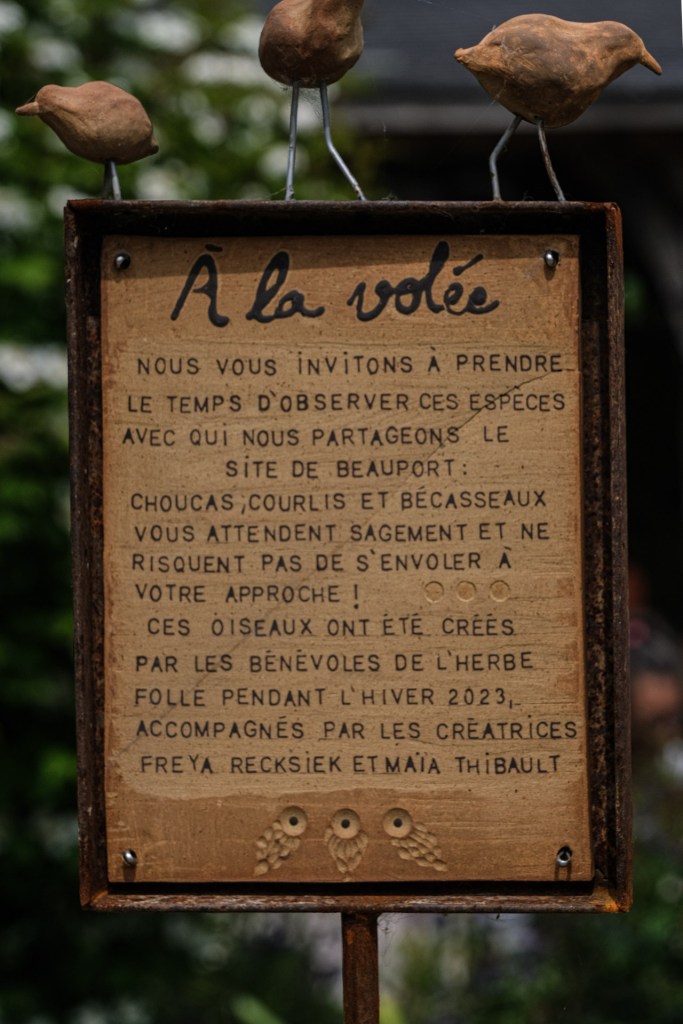 À la volée
NOUS VOUS INVITONS À PRENDRE
LE TEMPS D'OBSERVER CES ESPÈCES
AVEC QUI NOUS PARTAGEONS LE
SITE DE BEAUPORT :
CHOUCAS, COURLIS ET BÉCASSEAUX
VOUS ATTENDENT SAGEMENT ET NE
RISQUENT PAS DE S'ENVOLER À
VOTRE APPROCHE !
CES OISEAUX ONT ÉTÉ CRÉÉS
PAR LES BÉNÉVOLES DE L'HERBE
FOLLE PENDANT L'HIVER 2023,
ACCOMPAGNÉS PAR LES CRÉATRICES
FREYA RECKSIEK ET MAÏA THIBAULT